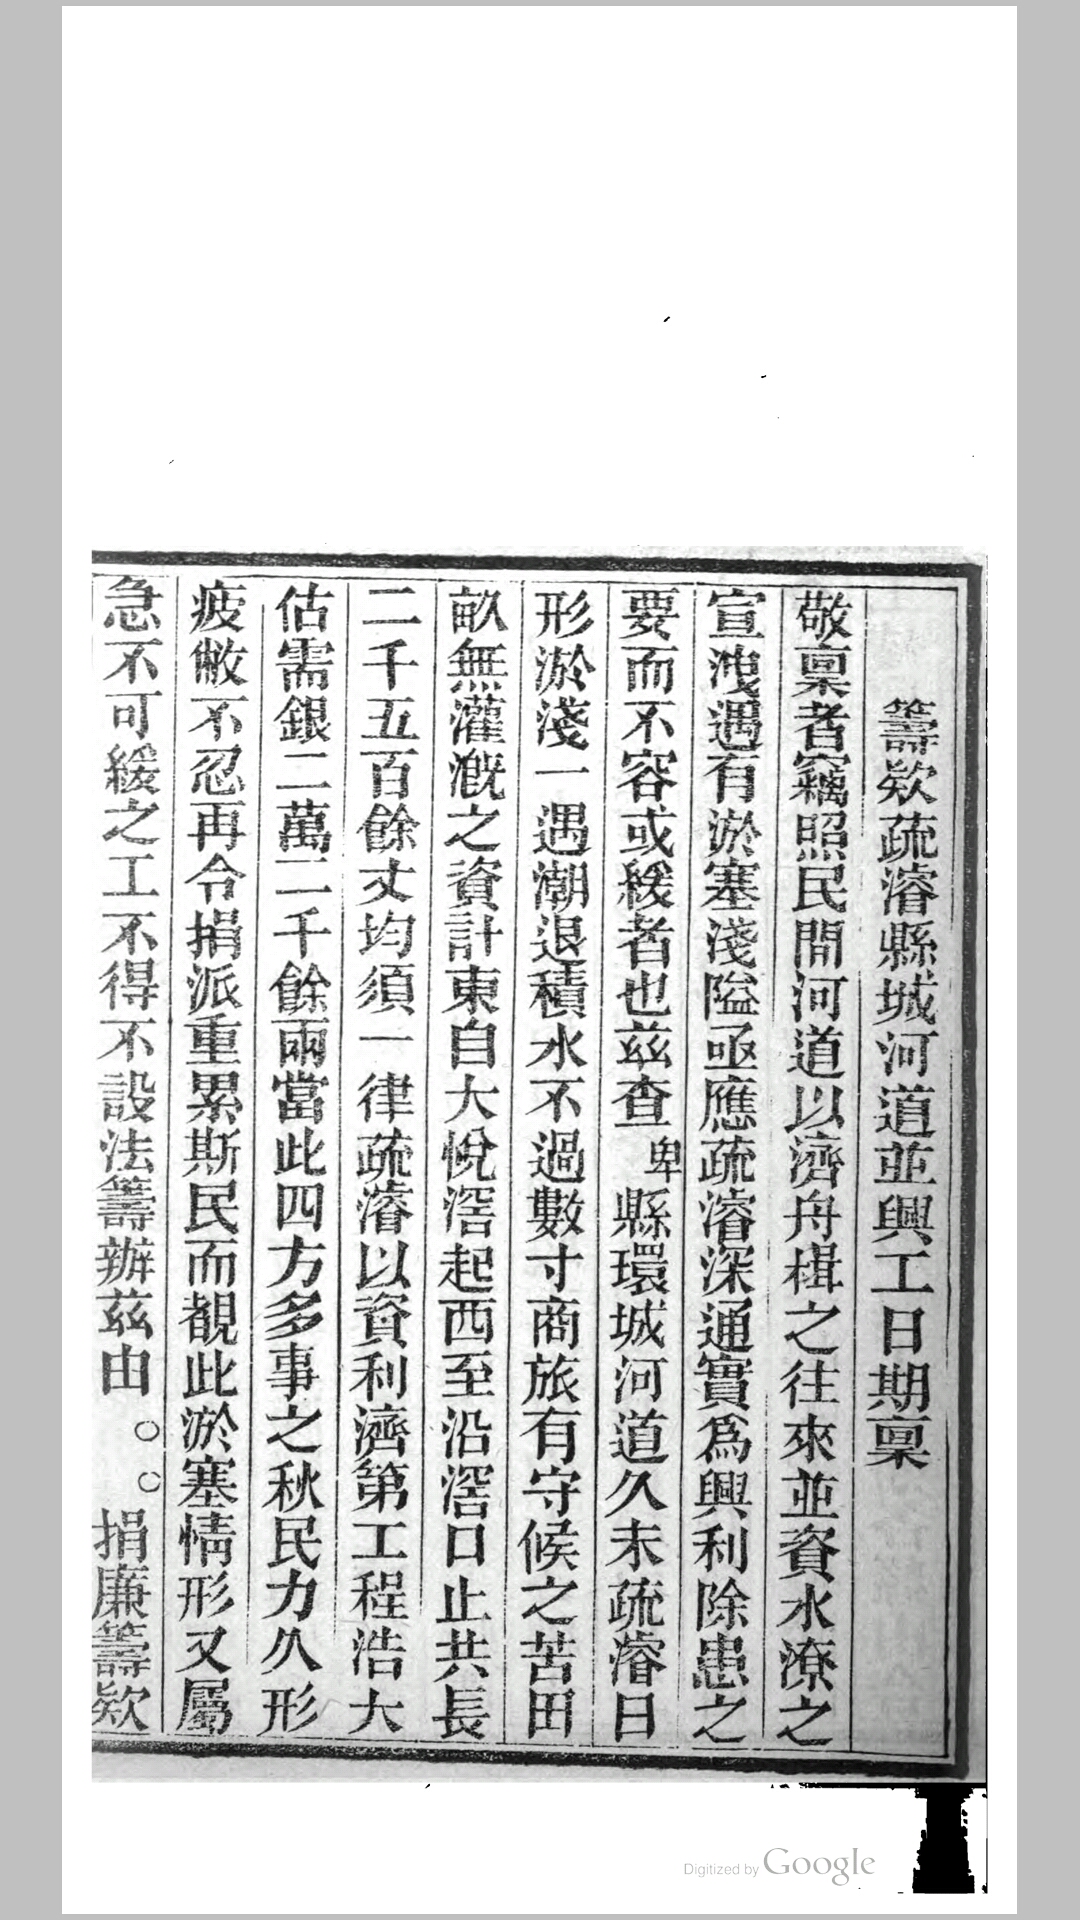 籌欵疏濬縣城河道並興工日期稟
敬稟者竊照民間河道以濟舟楫之往來並資水潦之
宣洩遇有淤塞淺隘亟應疏濬深通實爲興利除患之
要而不容或緩者也茲查卑縣環城河道久未疏濬日
形淤淺一遇潮退積水不過數寸商旅有守候之苦田
畝無灌溉之資計東自大悅滘起西至沿滘口止共長
二千五百餘丈均須一律疏濬以資利濟第工程浩大
估需銀二萬二千餘兩當此四方多事之秋民力久形
疲敝不忍再令捐派重累斯民而覩此淤塞情形又屬
急不可緩之工不得不設法籌辦茲由○○捐廉籌欵
Digitized by Google